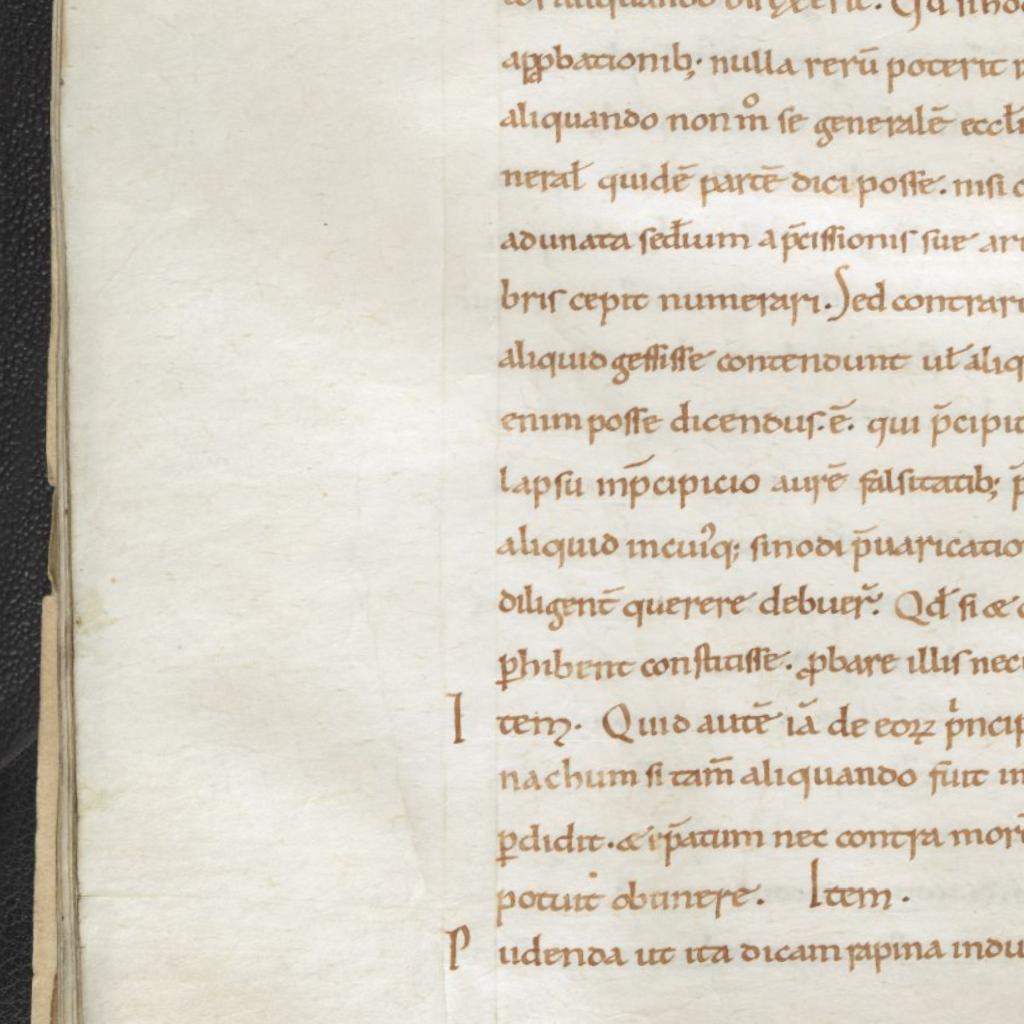 app̱bationib; nulla rerū poterit
aliquando non m̊ se generalē eccl̄
neral̄ quidē partē dici posse. nisi
adunata sed̄ium a p̄cissionis sue
bris cepit numerari. Sed contrar
aliquid gessisse contendunt ul̄ aliq
enim posse dicendus. ē. qui p̄cipit
lapsu inp̄cipicio aurē falsitatib;
aliquid incuiꝰq; sinodi p̄uaricatio
diligent̄ querere debuer̄. Qd̄ si æ
ꝑhibent constitisse. ꝓbare illis nec
Item. Quid autē iā de eoꝝ pͥncip
nachum si tam̄ aliquando fuit in
ꝑdidit. & ep̄atum nec contra mor
potuit obtinere. Item.
Pudenda ut ita dicam rapina indu